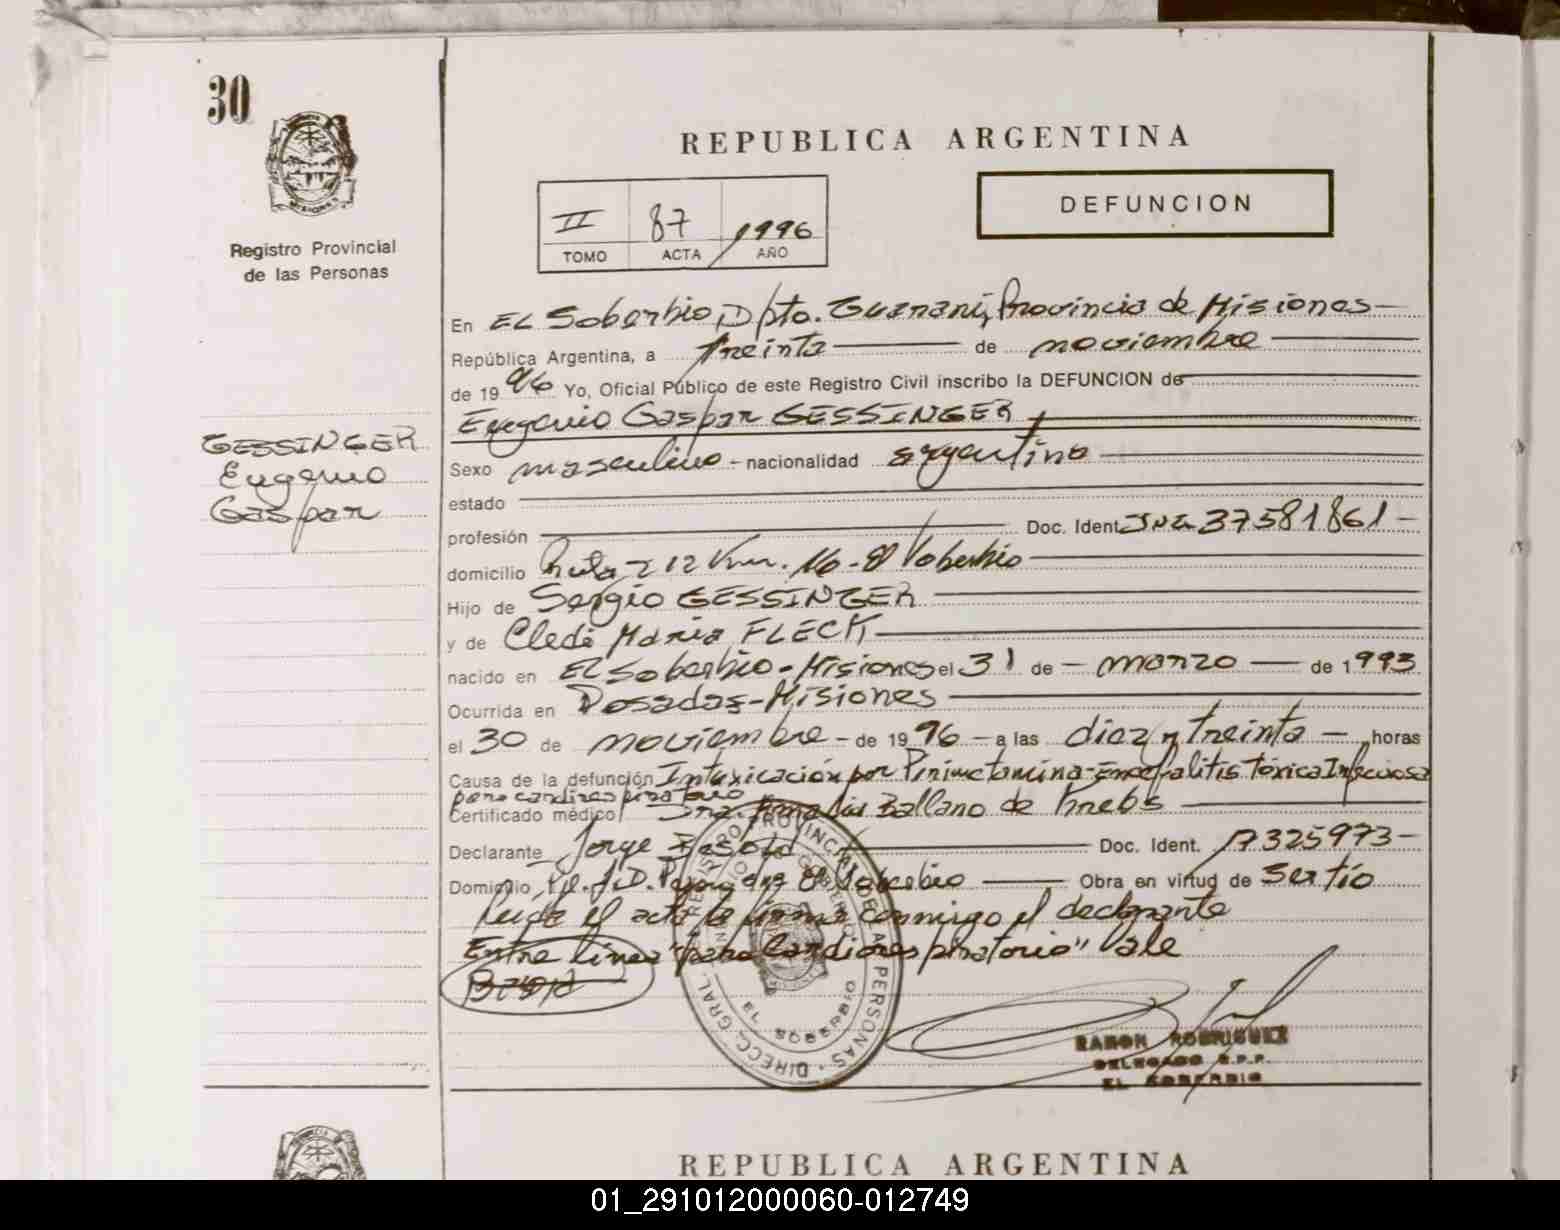 30
Registro Provincial
de las Personas
REPUBLICA ARGENTINA
II 87 1996
TOMO ACTA AÑO
DEFUNCION
GESSINGER
Eugenio
Gaspar
En EL Soberbio, Dpto. Guarani, Provincia de Misiones
República Argentina, a treinta de noviembre
de 1996 Yo, Oficial Público de este Registro Civil inscribo la DEFUNCION de
Eugenio Gaspar GESSINGER
Sexo masculino - nacionalidad argentino
estado
profesión Doc. Ident. 37581861
domicilio Ruta 212 Km. 16 - El Soberbio
Hijo de Sergio GESSINGER
y de Cledi Maria FLECK
nacido en EL Soberbio - Misiones el 31 de - marzo - de 1993
Ocurrida en Posadas - Misiones
el 30 de noviembre - de 1996 - a las diez y treinta - horas
Causa de la defunción Intoxicación por Encefalitis Tóxica Infecciosa
paro cardirespiratorio
Certificado médico Dra. Amalia Ballano de Krebs
Declarante Jorge Doc. Ident. 17325973
Domicilio El Soberbio Obra en virtud de
Leída el acta la firma conmigo el declarante
Entre línea "paro Cardiorespiratorio" Vale
DIRECC. GRAL. REGISTRO PROVINCIAL DE LAS PERSONAS
EL SOBERBIO
RAMON RODRIGUEZ
DELEGADO R.P.P.
EL SOBERBIO
REPUBLICA ARGENTINA
01_291012000060-012749